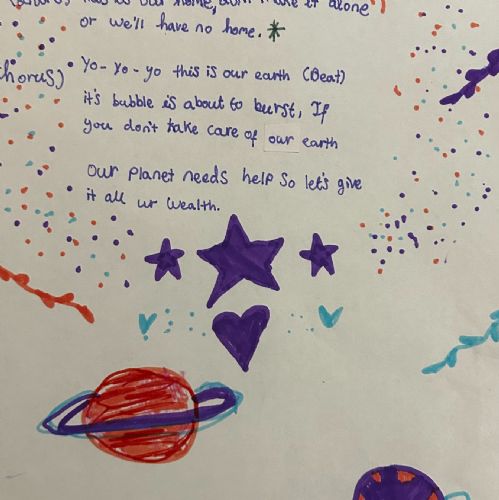 our home, don't make it alone"
or we'll have no home.*
Chorus) Yo-Yo-yo this is our earth (Beat)
it's bubble is about to burst, If
you don't take care of our earth
Our Planet needs help So let's give
it all ur wealth.